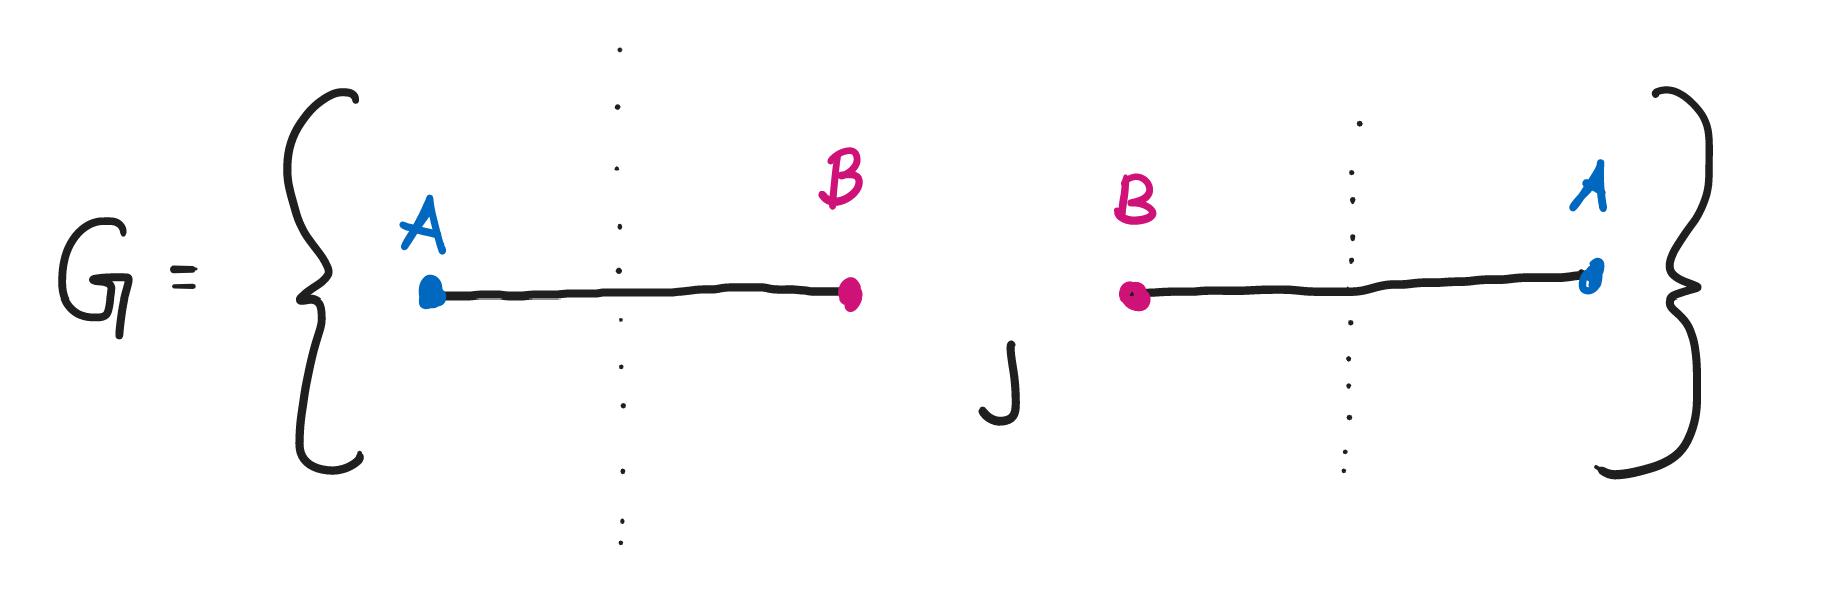 G = { A B , B A }